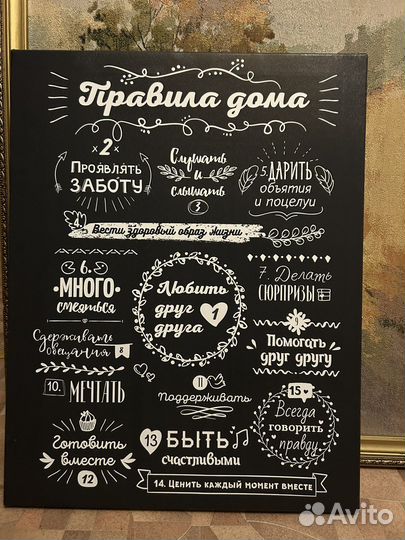 Правила дома
x2x
Проявлять
заботу
Слушать
и
слышать
3
5 Дарить
объятия
и поцелуи
4
Вести здоровый образ жизни
6.
много
смеяться
Любить
друг
друга
1
7. Делать
сюрпризы
Сдерживать
обещания 8
9
Помогать
друг другу
10.
мечтать
11
Поддерживать
15
Всегда
говорить
правду
Готовить
вместе
12
13 быть
счастливыми
14. Ценить каждый момент вместе
Avito